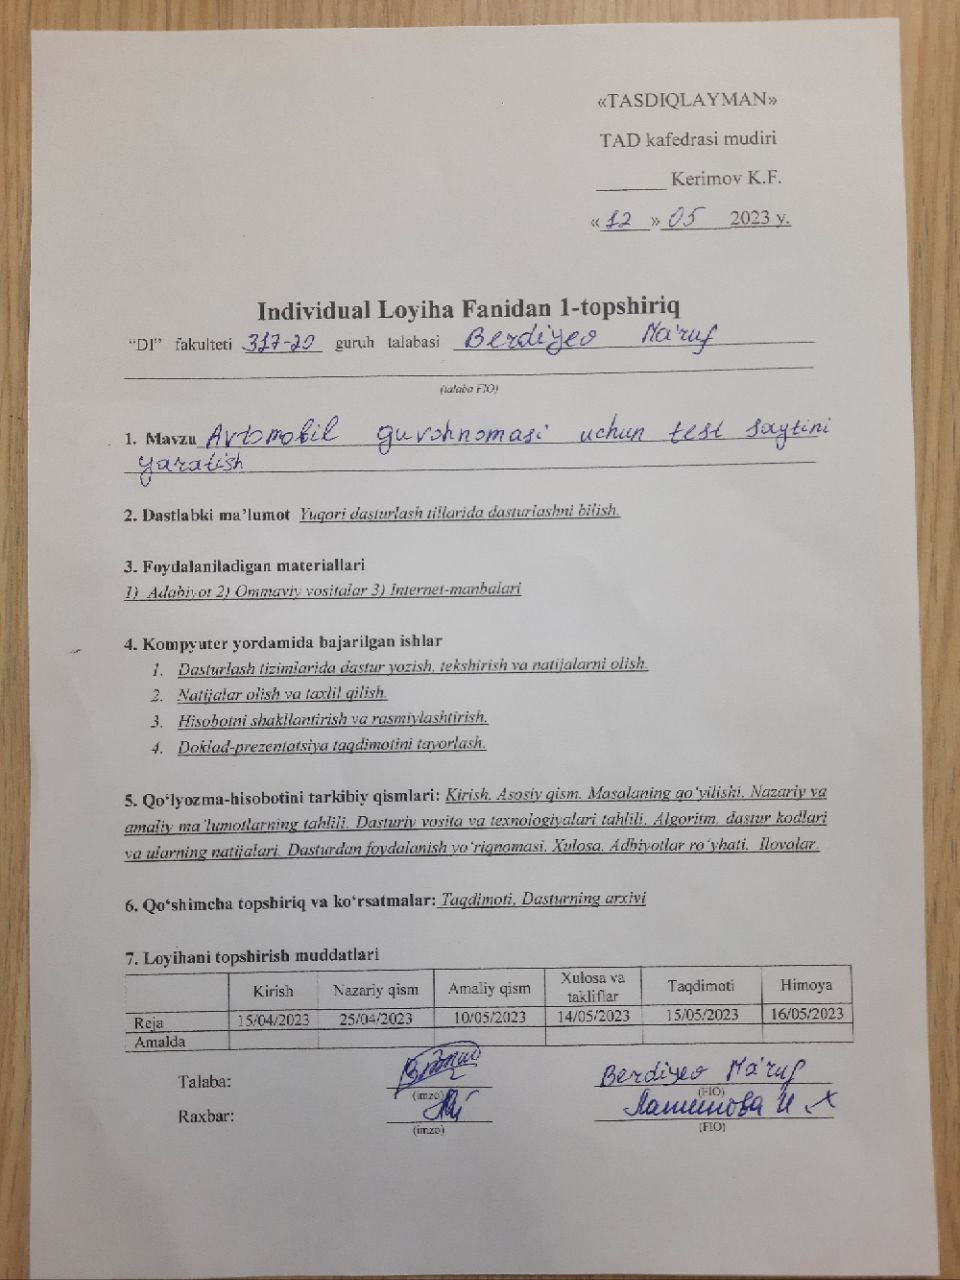 «TASDIQLAYMAN»
TAD kafedrasi mudiri
_______ Kerimov K.F.
« 12 » 05 2023 y.
Individual Loyiha Fanidan 1-topshiriq
“DI” fakulteti 317-20 guruh talabasi Berdiyev Ma'ruf
(talaba FIO)
1. Mavzu Avtomobil guvohnomasi uchun test saytini
yaratish
2. Dastlabki ma’lumot Yuqori dasturlash tillarida dasturlashni bilish.
3. Foydalaniladigan materiallari
1) Adabiyot 2) Ommaviy vositalar 3) Internet-manbalari
4. Kompyuter yordamida bajarilgan ishlar
1. Dasturlash tizimlarida dastur yozish, tekshirish va natijalarni olish.
2. Natijalar olish va taxlil qilish.
3. Hisobotni shakllantirish va rasmiylashtirish.
4. Doklad-prezentatsiya taqdimotini tayorlash.
5. Qo‘lyozma-hisobotini tarkibiy qismlari: Kirish. Asosiy qism. Masalaning qo‘yilishi. Nazariy va
amaliy ma’lumotlarning tahlili. Dasturiy vosita va texnologiyalari tahlili. Algoritm, dastur kodlari
va ularning natijalari. Dasturdan foydalanish yo‘riqnomasi. Xulosa. Adbiyotlar ro‘yhati. Ilovalar.
6. Qo‘shimcha topshiriq va ko‘rsatmalar: Taqdimoti. Dasturning arxivi
7. Loyihani topshirish muddatlari
Kirish Nazariy qism Amaliy qism Xulosa va takliflar Taqdimoti Himoya
Reja 15/04/2023 25/04/2023 10/05/2023 14/05/2023 15/05/2023 16/05/2023
Amalda
Talaba: Berdiyev Ma'ruf
(imzo) (FIO)
Raxbar:
(imzo) (FIO)